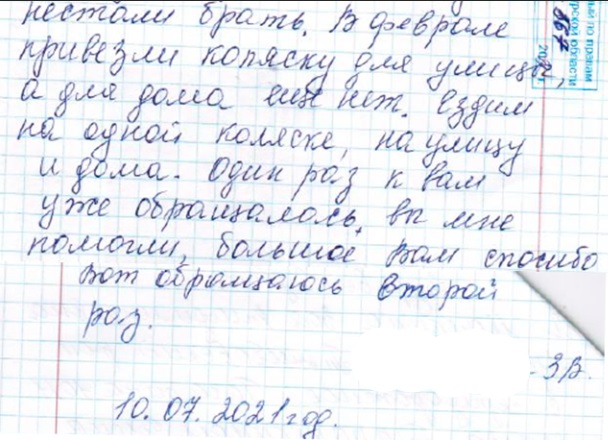 нестали брать. В феврале
привезли коляску для улицы,
а для дома ещё нет. Ездим
на одной коляске, на улицу
и дома. Один раз к вам
уже обращалась, вы мне
помогли, большое Вам спосибо
Вот обращаюсь второй
раз.
- З.В.
10.07.2021 год.